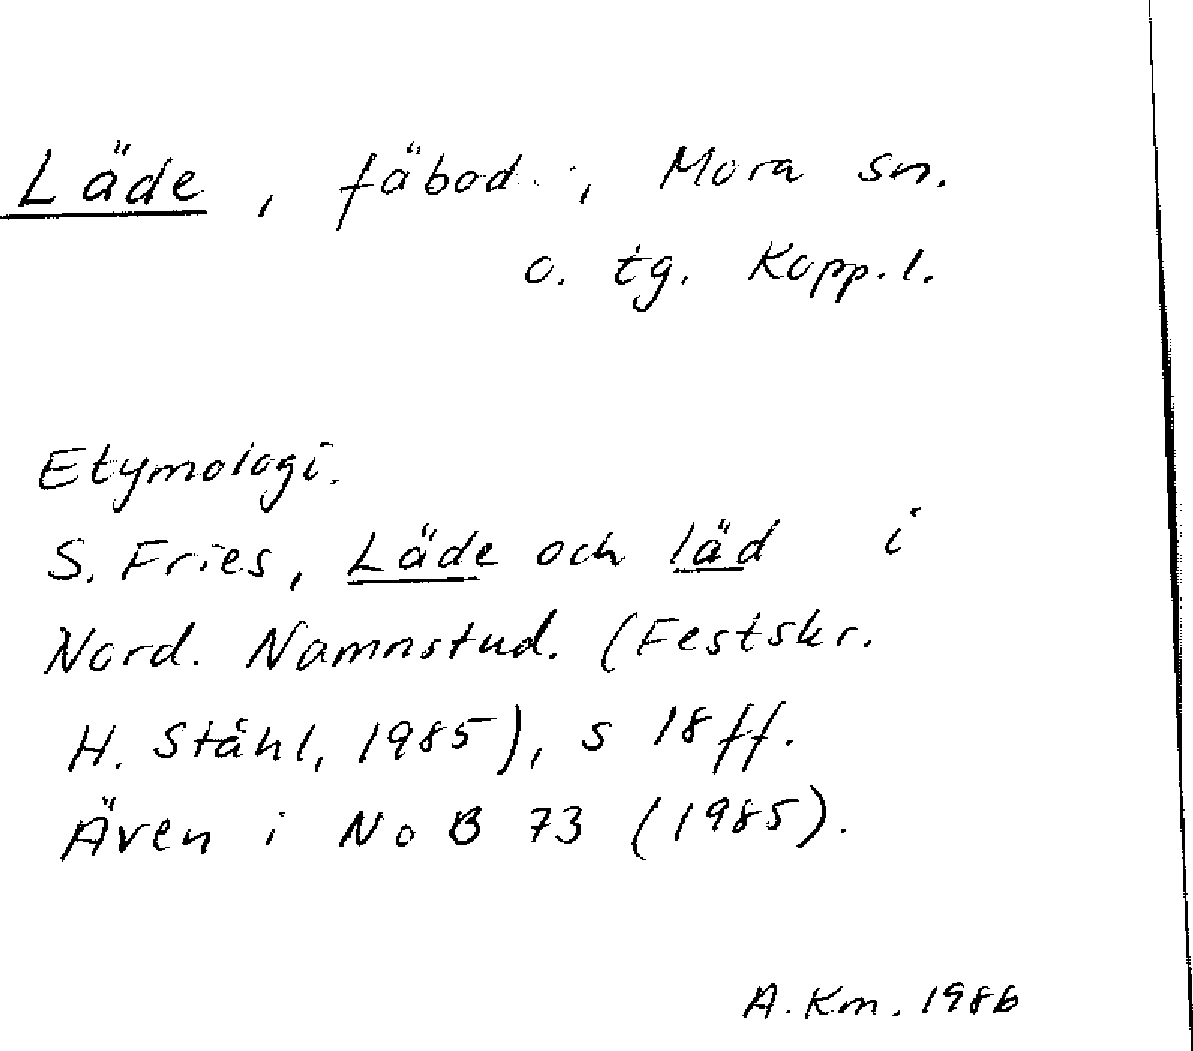 Läde, fäbod., Mora sn.
o. tg. Kopp.l.
Etymologi.
S. Fries, Läde och läd i
Nord. Namnstud. (Festskr.
H. Ståhl, 1985), s 18 ff.
Även i NoB 73 (1985).
A. Km. 1986